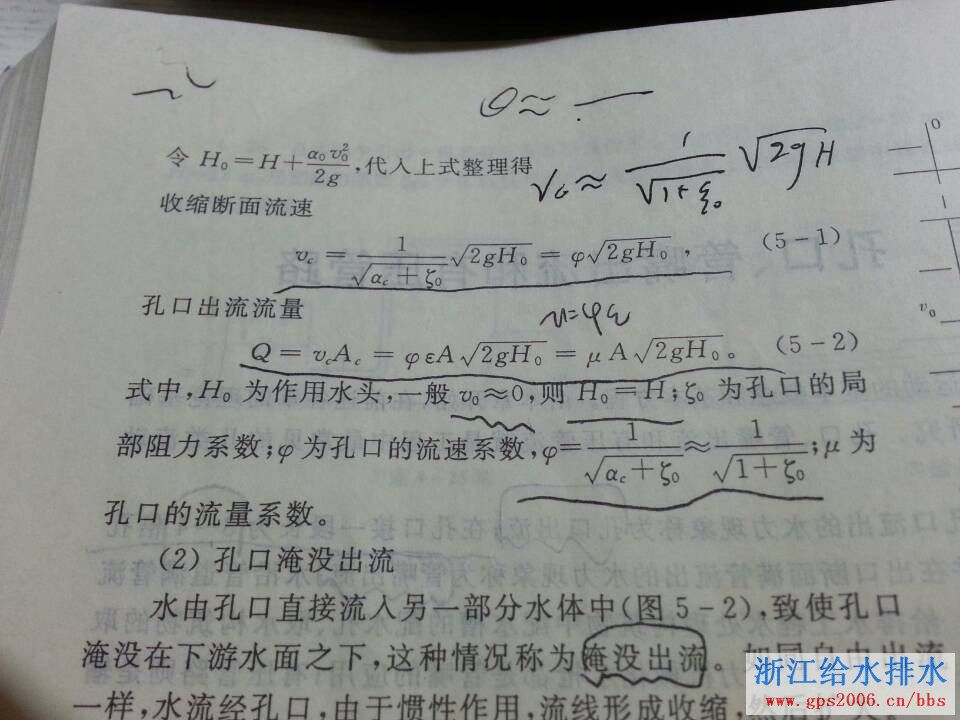 令 H₀=H+α₀v₀²/2g,代入上式整理得
v_c ≈ 1/√(1+ξ₀) √2gH
收缩断面流速
v_c = 1/√(α_c+ζ₀) √2gH₀ = φ√2gH₀, (5-1)
孔口出流流量
μ=φε
Q = v_cA_c = φεA√2gH₀ = μA√2gH₀。 (5-2)
式中,H₀ 为作用水头,一般 v₀≈0,则 H₀=H;ζ₀ 为孔口的局
部阻力系数;φ为孔口的流速系数,φ=1/√(α_c+ζ₀)≈1/√(1+ζ₀);μ为
孔口的流量系数。
(2) 孔口淹没出流
水由孔口直接流入另一部分水体中(图 5-2),致使孔口
淹没在下游水面之下,这种情况称为淹没出流。如同自由出流
一样,水流经孔口,由于惯性作用,流线形成收缩,
0
1
v₀
浙江给水排水
www.gps2006.cn/bbs